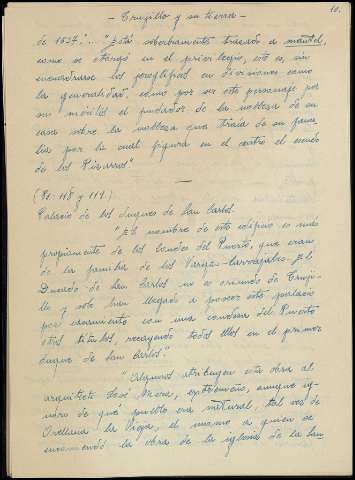 10.
- Trujillo y su tierra -
de 1537." .. "Está soberbiamente trazado a mantel,
como se otorgó en el privilegio, esto es, sin
encuadrarse los jeroglíficos en divisiones como
la generalidad, como por ser este personaje por
sus méritos el fundador de la nobleza de su
casa sobre la nobleza que traía de su fami-
lia por la cual figura en el centro el escudo
de los Pizarros"
(Pg: 118 y 119.)
Palacio de los duques de San Carlos.
"El nombre de este edificio es más
propiamente de los Condes del Puerto, que eran
de la familia de los Vargas-Carvajales. El
Ducado de San Carlos no es oriundo de Truji-
llo y solo han llegado a poseer este palacio
por casamiento con una condesa del Puerto
otros títulos, recayendo todos ellos en el primer
duque de San Carlos."
"Algunos atribuyen esta obra al
arquitecto José Mora, extremeño, aunque ig-
noro de qué pueblo era natural, tal vez de
Orellana la Vieja, el mismo a quien se
encomendó la obra de la iglesia de la San